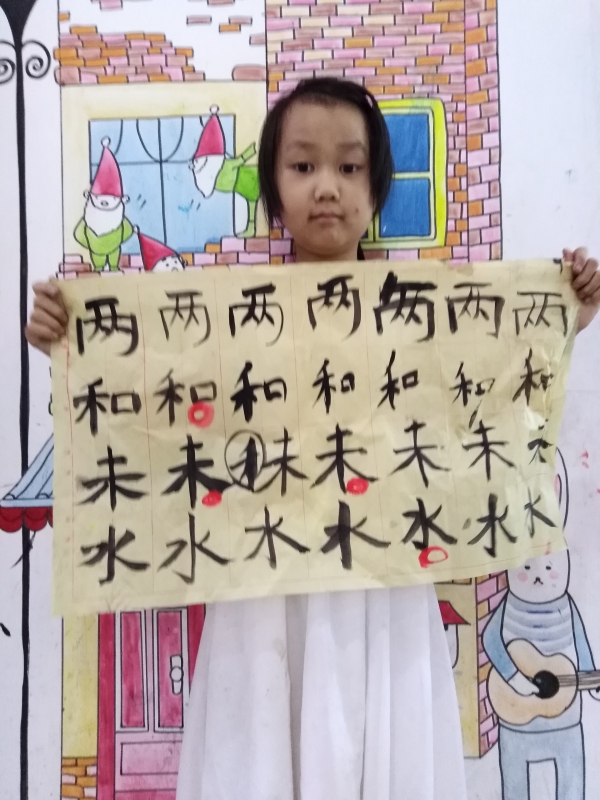 两两两两两两两
和和和和和和和
未未未未未未未
水水水水水水水